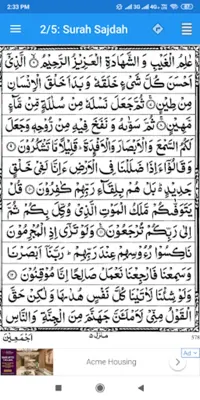 2:33 PM
2/5: Surah Sajdah
عٰلِمُ الْغَيْبِ وَالشَّهَادَةِ الْعَزِيْزُ الرَّحِيْمُ ۙ الَّذِيْۤ
اَحْسَنَ كُلَّ شَيْءٍ خَلَقَهٗ وَبَدَاَ خَلْقَ الْاِنْسَانِ
مِنْ طِيْنٍ ۚ ثُمَّ جَعَلَ نَسْلَهٗ مِنْ سُلٰلَةٍ مِّنْ مَّآءٍ
مَّهِيْنٍ ۚ ثُمَّ سَوّٰىهُ وَنَفَخَ فِيْهِ مِنْ رُّوْحِهٖ وَجَعَلَ
لَكُمُ السَّمْعَ وَالْاَبْصَارَ وَالْاَفْـِٕدَةَ ؕ قَلِيْلًا مَّا تَشْكُرُوْنَ
وَقَالُوْۤا ءَاِذَا ضَلَلْنَا فِي الْاَرْضِ ءَاِنَّا لَفِيْ خَلْقٍ
جَدِيْدٍ ؕ بَلْ هُمْ بِلِقَآئِ رَبِّهِمْ كٰفِرُوْنَ قُلْ
يَتَوَفّٰىكُمْ مَّلَكُ الْمَوْتِ الَّذِيْ وُكِّلَ بِكُمْ ثُمَّ
اِلٰى رَبِّكُمْ تُرْجَعُوْنَ وَلَوْ تَرٰۤى اِذِ الْمُجْرِمُوْنَ
نَاكِسُوْا رُءُوْسِهِمْ عِنْدَ رَبِّهِمْ ؕ رَبَّنَاۤ اَبْصَرْنَا
وَسَمِعْنَا فَارْجِعْنَا نَعْمَلْ صَالِحًا اِنَّا مُوْقِنُوْنَ
وَلَوْ شِئْنَا لَاٰتَيْنَا كُلَّ نَفْسٍ هُدٰىهَا وَلٰكِنْ حَقَّ
الْقَوْلُ مِنِّيْ لَاَمْلَـَٔنَّ جَهَنَّمَ مِنَ الْجِنَّةِ وَالنَّاسِ
اَجْمَعِيْنَ
منزل ٥
Ad
Acme Housing